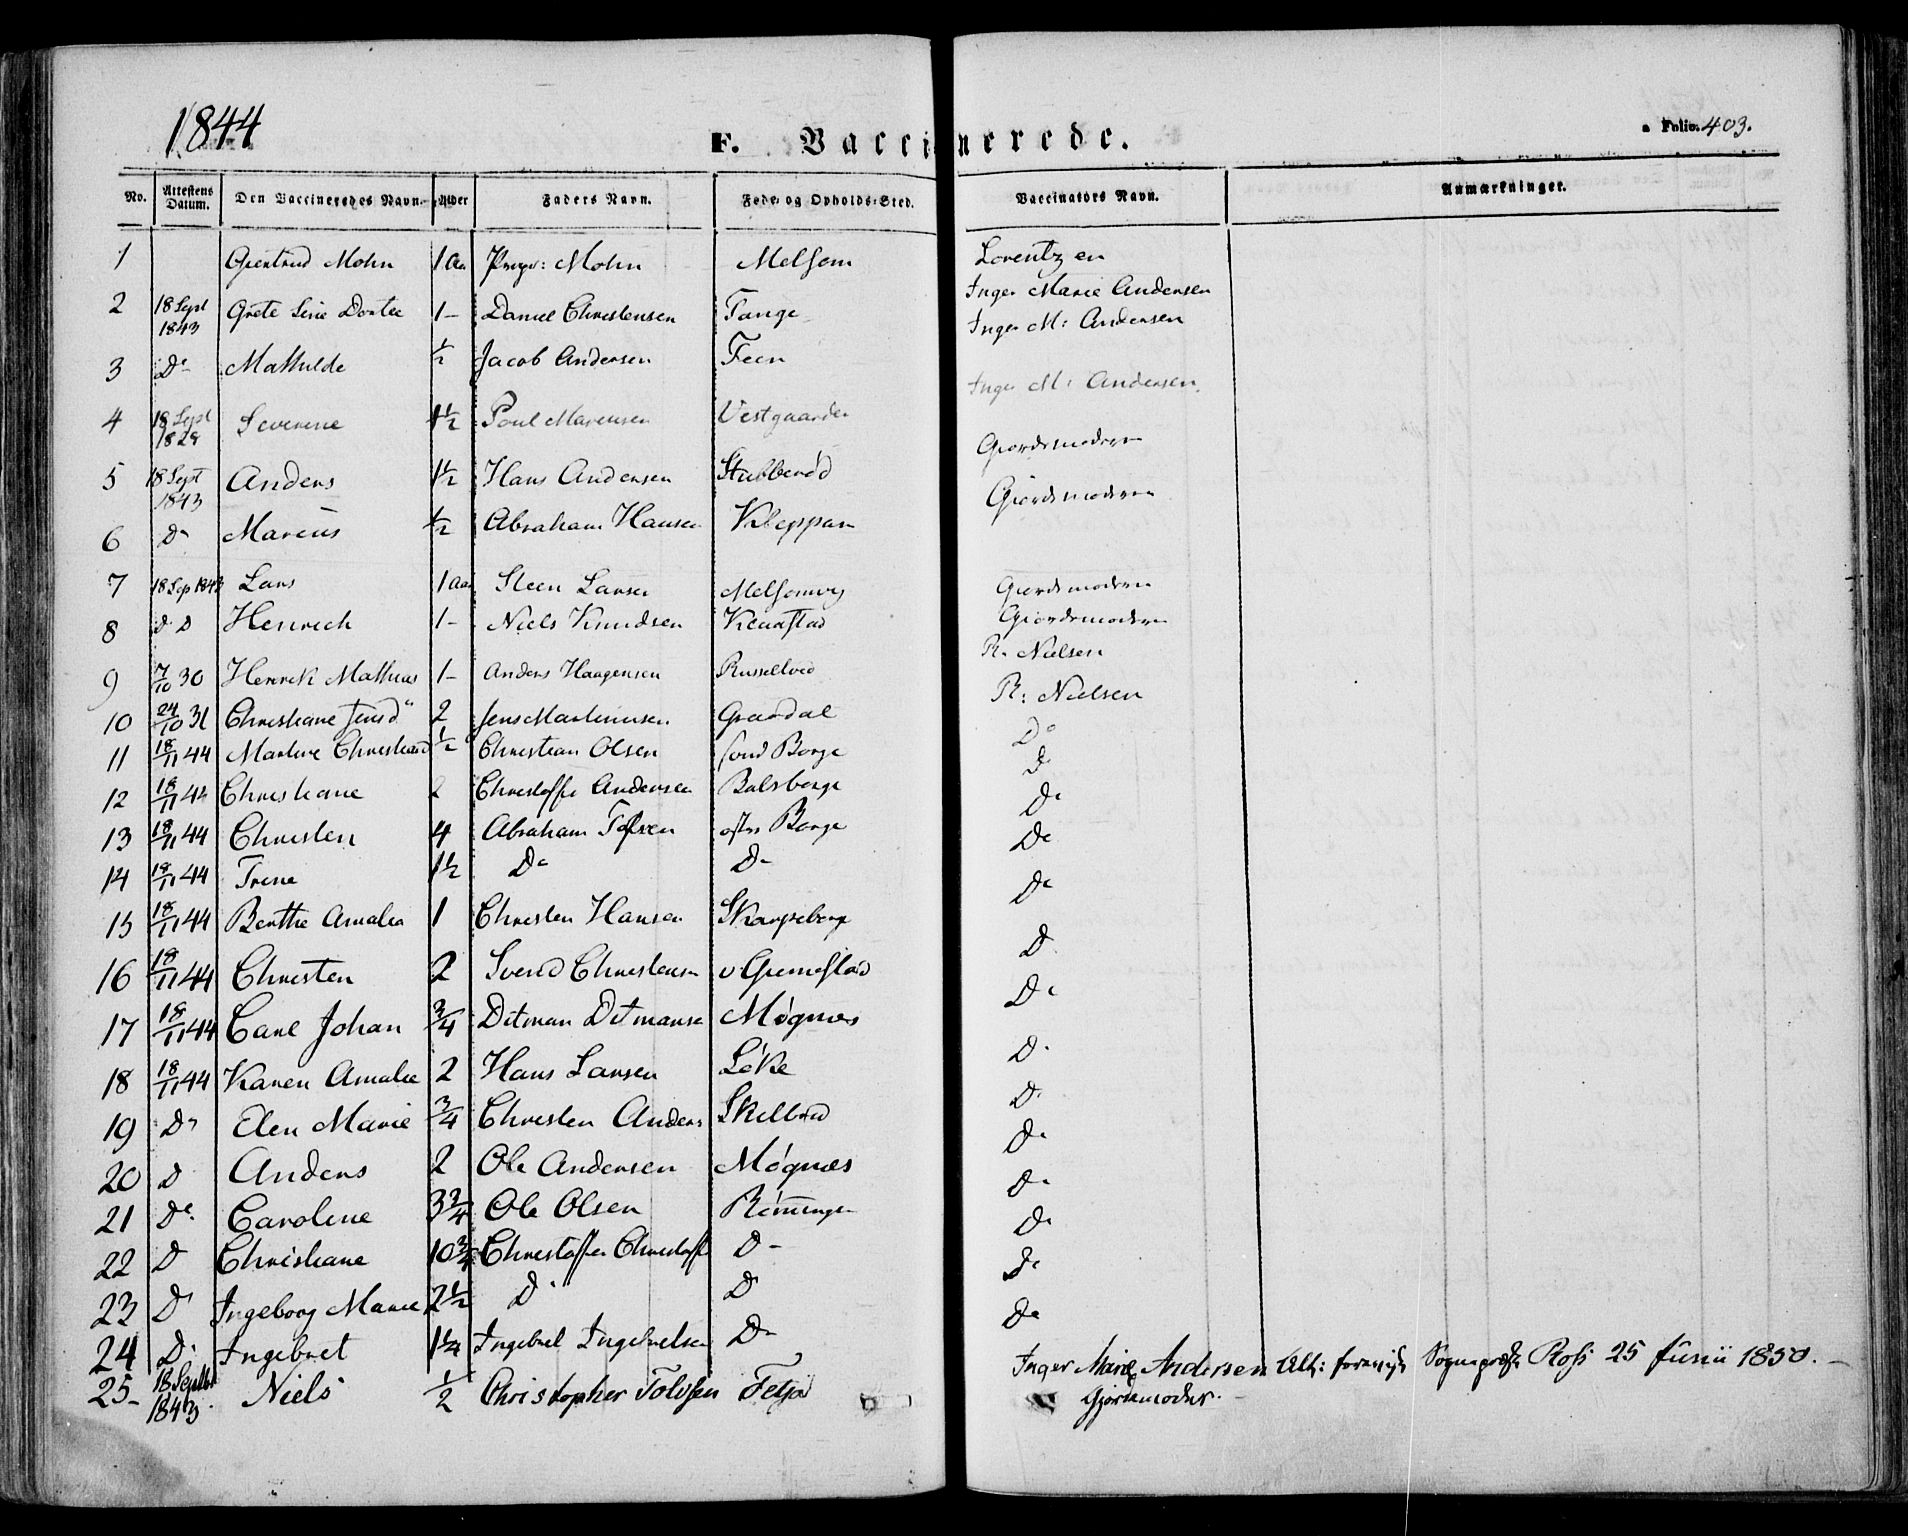 1844
F. Vaccinerede.
Folio. 403.
No. Attestens Datum. Den Vaccineredes Navn. Alder Faders Navn. Føde- og Opholds-Sted. Vaccinators Navn. Anmærkninger.
1 Giertrud Mohn 1 Aar Mohn Melsom Lorentzen
2 18 Sept 1843 Grete Line Dortee 1 – Daniel Christensen Tange Inger Marie Andersen
3 Do Mathilde ½ Jacob Andersen Feen Inger M: Andersen
4 18 Sept Severine 1½ Poul Marensen Vestgaarden Inger M: Andersen
5 18 Sept 1843 Anders 1½ Hans Andersen Stubberød Giordemoderen
6 Do Marcus ½ Abraham Hansen Kleppan Giordemoderen
7 18 Sep 1843 Lars 1 Aar Steen Larsen Melsomvig Giordemoderen
8 D D Henrich 1 – Niels Knudsen Klaastad Giordemoderen
9 7/10 30 Henrek Mathias 1 – Anders Haagensen Russeltved R. Nielsen
10 24/10 31 Christiane Jensd 2 Jens Martinusen Graadal R: Nielsen
11 18/11 44 Martine Christiand ½ Christian Olsen Sond Borge Do
12 18/11 44 Christiane 2 Christoffer Andersen Bolsberge D
13 18/11 44 Christen 4 Abraham Tofsen øster Borge Do
14 18/11 44 Trine 1½ Do Do Do
15 18/11 44 Berthe Amalia 1 Christen Hansen Skarpeberge Do
16 18/11 44 Christen 2 Svend Christensen v Grimestad D
17 18/11 44 Carl Johan ¾ Ditman Ditmansen Møgnæs Do
18 18/11 44 Karen Amalie 2 Hans Larsen Løke D
19 Do Elen Marie ¾ Christen Anders Skilbred D
20 D Anders 2 Ole Andersen Møgnæs Do
21 Do Caroline 3¾ Ole Olsen Rømmingen Do
22 D Christiane 10¾ Christoffer Christoff D – Do
23 D Ingeborg Marie 2½ D D Do
24 D Ingebret 1¼ Ingebret Ingebretsen Do Do
25 – 18 Septbr 1843. Niels ½ Christopher Tolvsen Fetja Inger Marie Andersen Gjordemoder. Att: foreviist Sognepræst Ross 25 Junii 1850. –